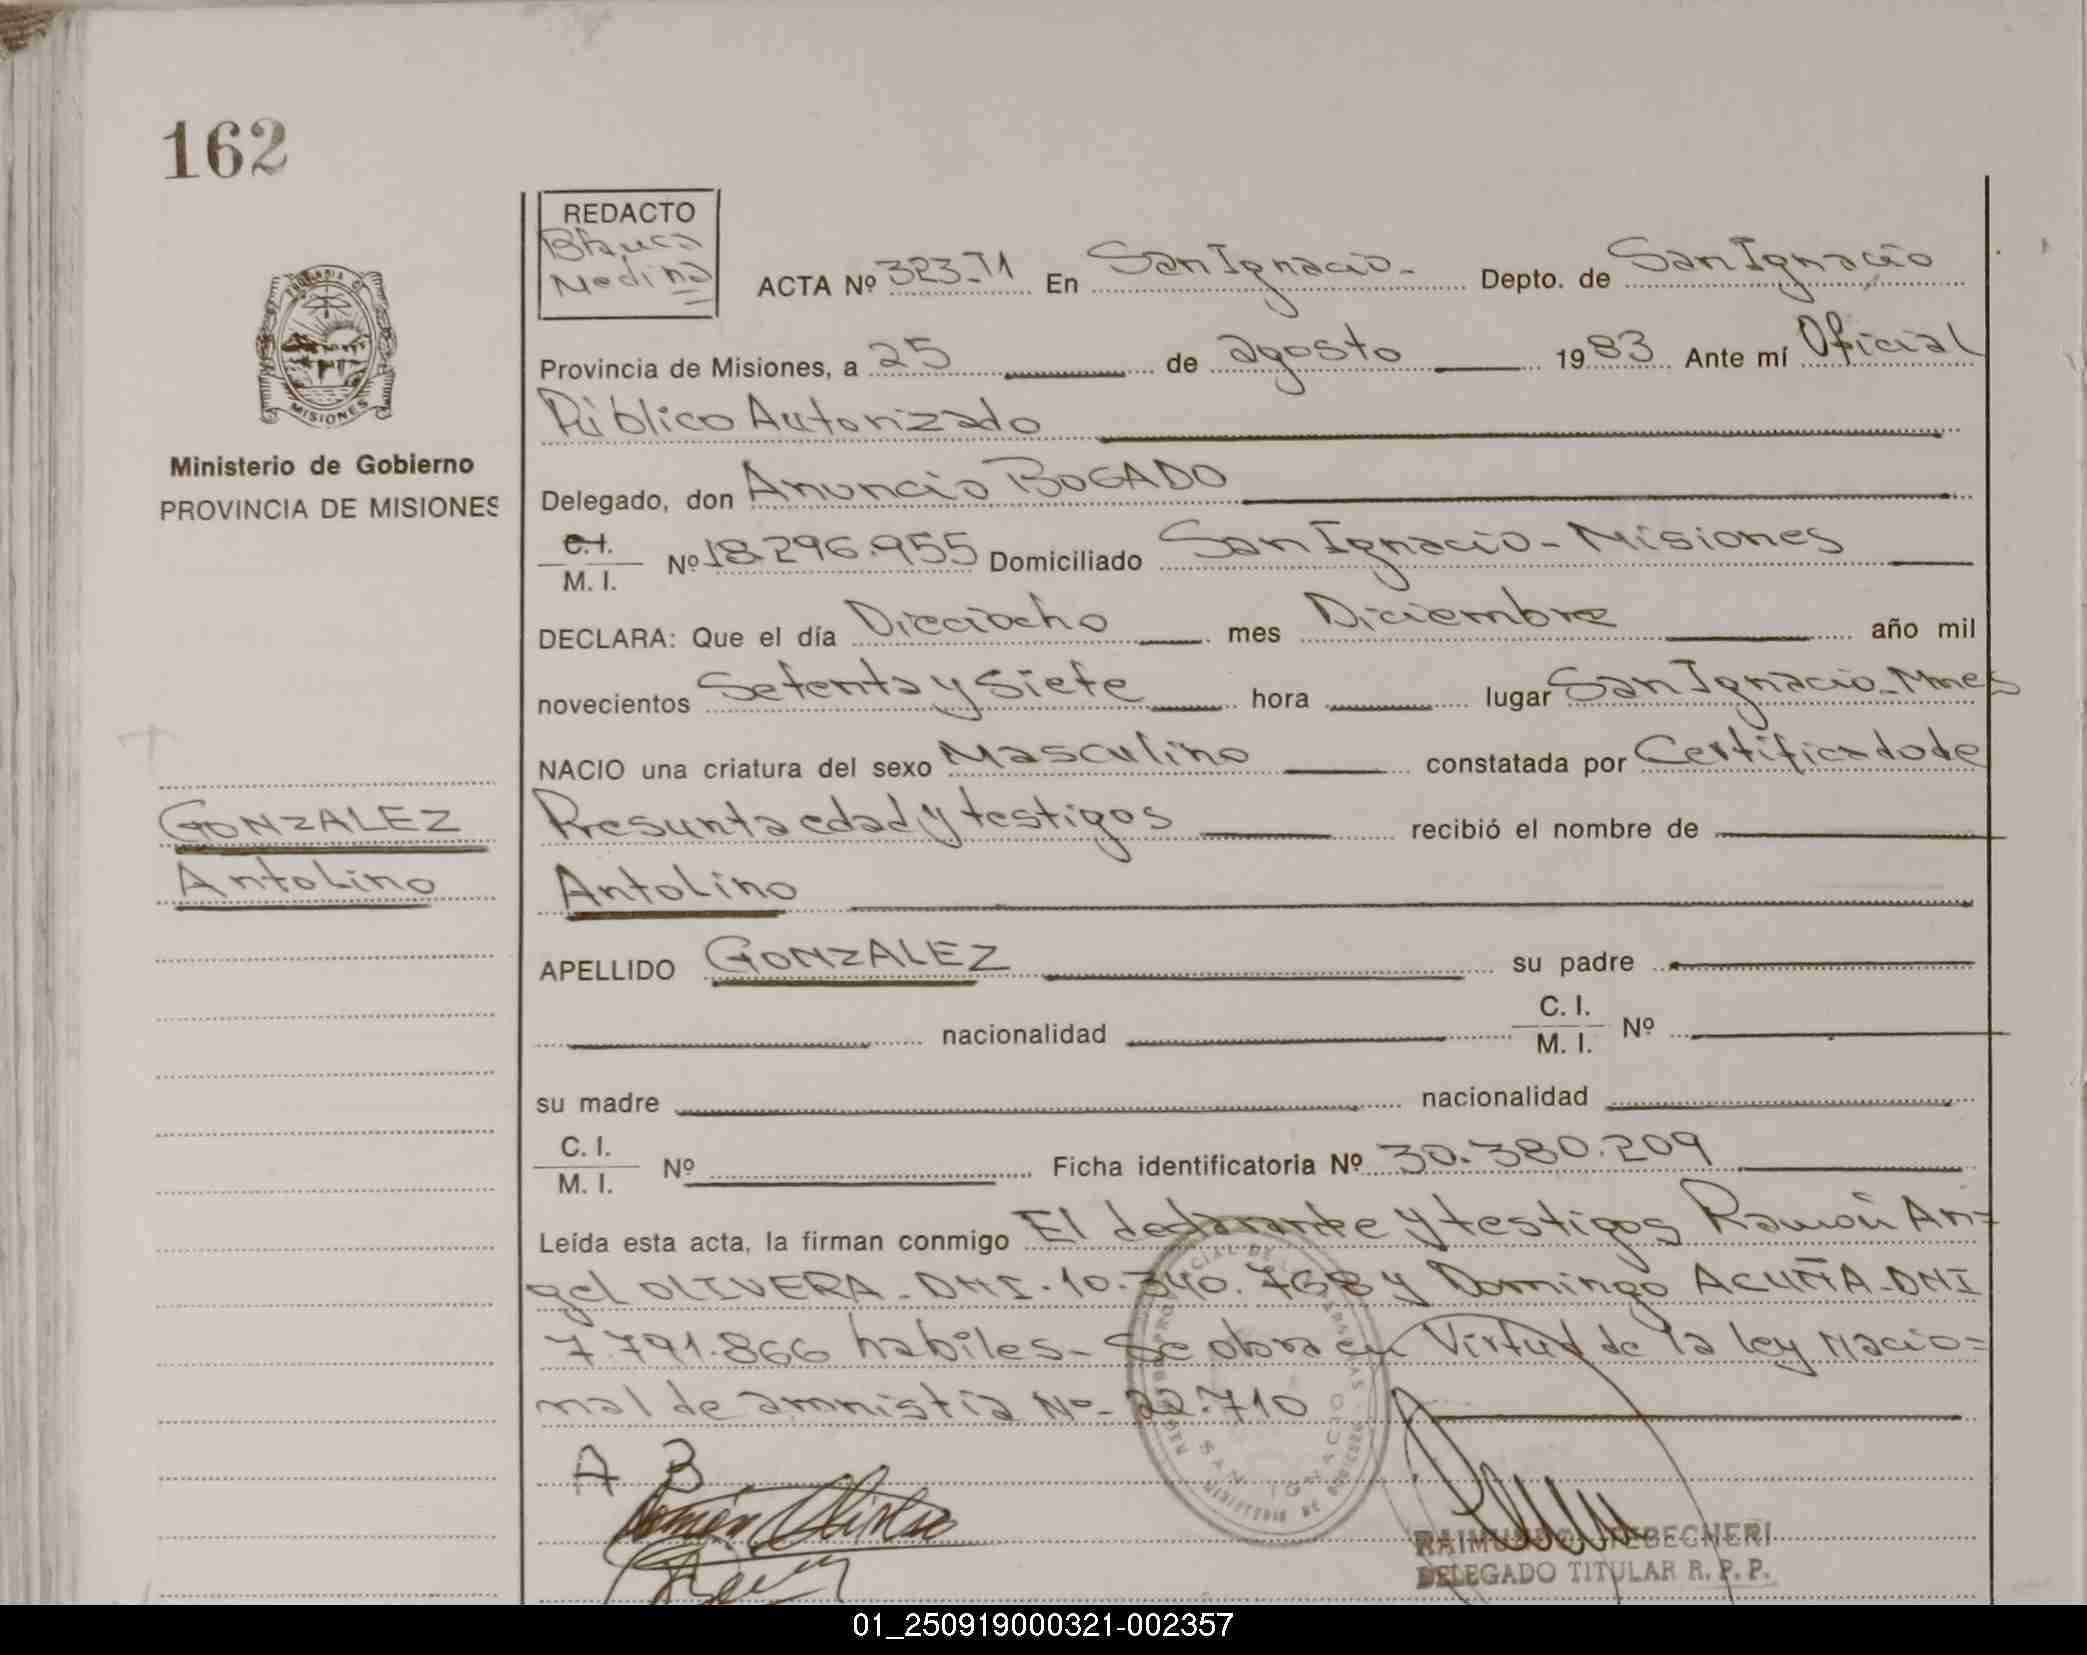 162
REDACTO
Blanca
Medina
ACTA Nº 323-T1 En San Ignacio - Depto. de San Ignacio
Provincia de Misiones, a 25 de agosto 1983 Ante mí Oficial
Público Autorizado
MISIONES
Ministerio de Gobierno
PROVINCIA DE MISIONES
Delegado, don Anuncio BOGADO
C.I.
M. I. Nº 18.296.955 Domiciliado San Ignacio - Misiones
DECLARA: Que el día Dieciocho mes Diciembre año mil
novecientos Setenta y Siete hora lugar San Ignacio - Mnes
NACIO una criatura del sexo Masculino constatada por Certificado de
Presunta edad y testigos recibió el nombre de
GONZALEZ
Antolino
Antolino
APELLIDO GONZALEZ su padre
nacionalidad C. I. M. I. Nº
su madre nacionalidad
C. I.
M. I. Nº Ficha identificatoria Nº 30.380.209
Leída esta acta, la firman conmigo El declarante y testigos Ramón An-
gel OLIVERA - DNI. 10.340.768 y Domingo ACUÑA - DNI
7.791.866 habiles - Se obra en Virtud de la ley Nacio=
nal de amnistia Nº - 22.710
A B
SAN IGNACIO
MINISTERIO DE GOBIERNO
DELEGADO TITULAR R. P. P.
01_250919000321-002357